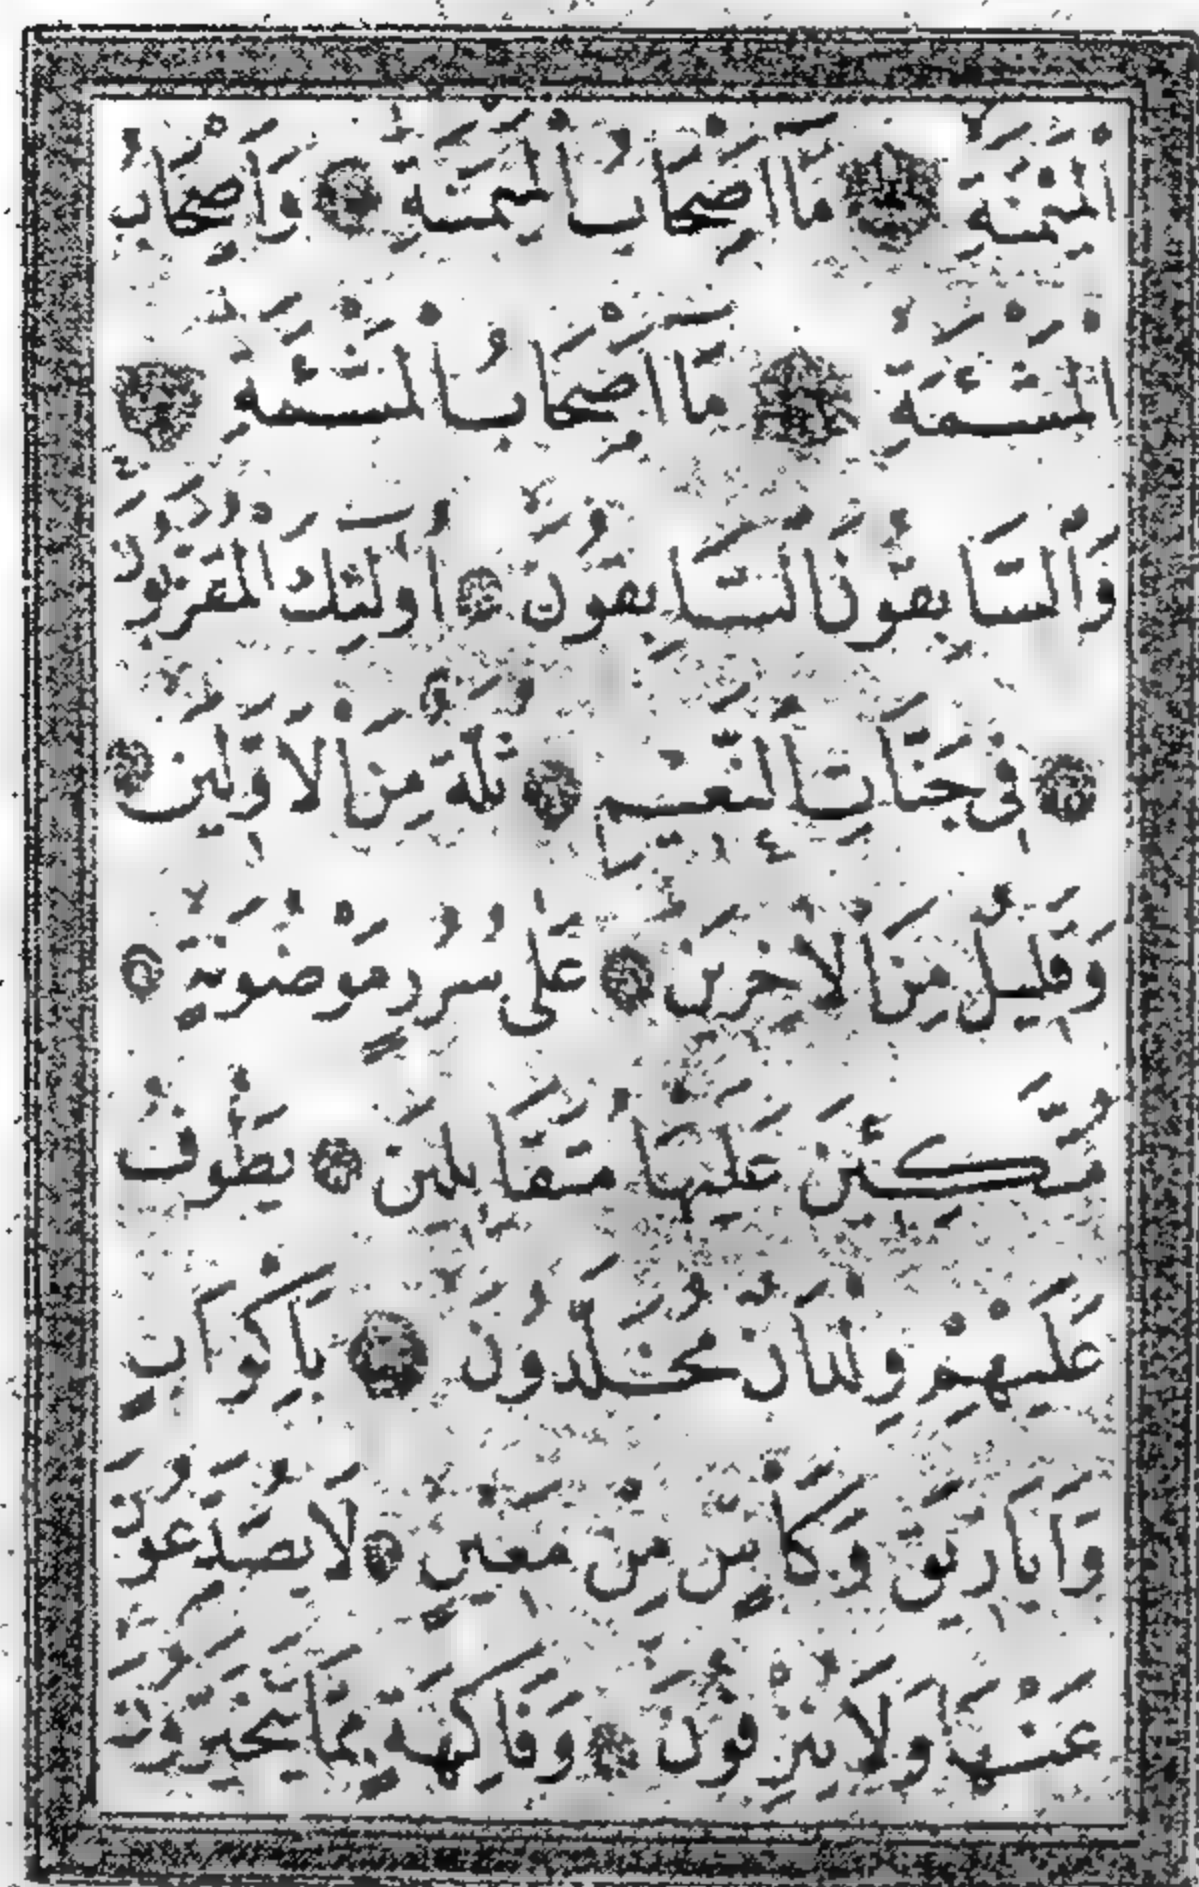 الْمَيْمَنَةِ مَا أَصْحَابُ الْمَيْمَنَةِ وَأَصْحَابُ
الْمَشْئَمَةِ مَا أَصْحَابُ الْمَشْئَمَةِ
وَالسَّابِقُونَ السَّابِقُونَ أُولَئِكَ الْمُقَرَّبُونَ
فِي جَنَّاتِ النَّعِيمِ ثُلَّةٌ مِنَ الْأَوَّلِينَ
وَقَلِيلٌ مِنَ الْآخِرِينَ عَلَى سُرُرٍ مَوْضُونَةٍ
مُتَّكِئِينَ عَلَيْهَا مُتَقَابِلِينَ يَطُوفُ
عَلَيْهِمْ وِلْدَانٌ مُخَلَّدُونَ بِأَكْوَابٍ
وَأَبَارِيقَ وَكَأْسٍ مِنْ مَعِينٍ لَا يُصَدَّعُونَ
عَنْهَا وَلَا يُنْزِفُونَ وَفَاكِهَةٍ مِمَّا يَتَخَيَّرُونَ